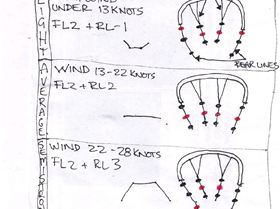 LIGHT
UNDER 13KNOTS
FL2 + RL-1
REAR LINES
AVERAGE
WIND 13-22 KNOTS
FL2 + RL2
WIND 22-28KNOTS
FL2 + RL3